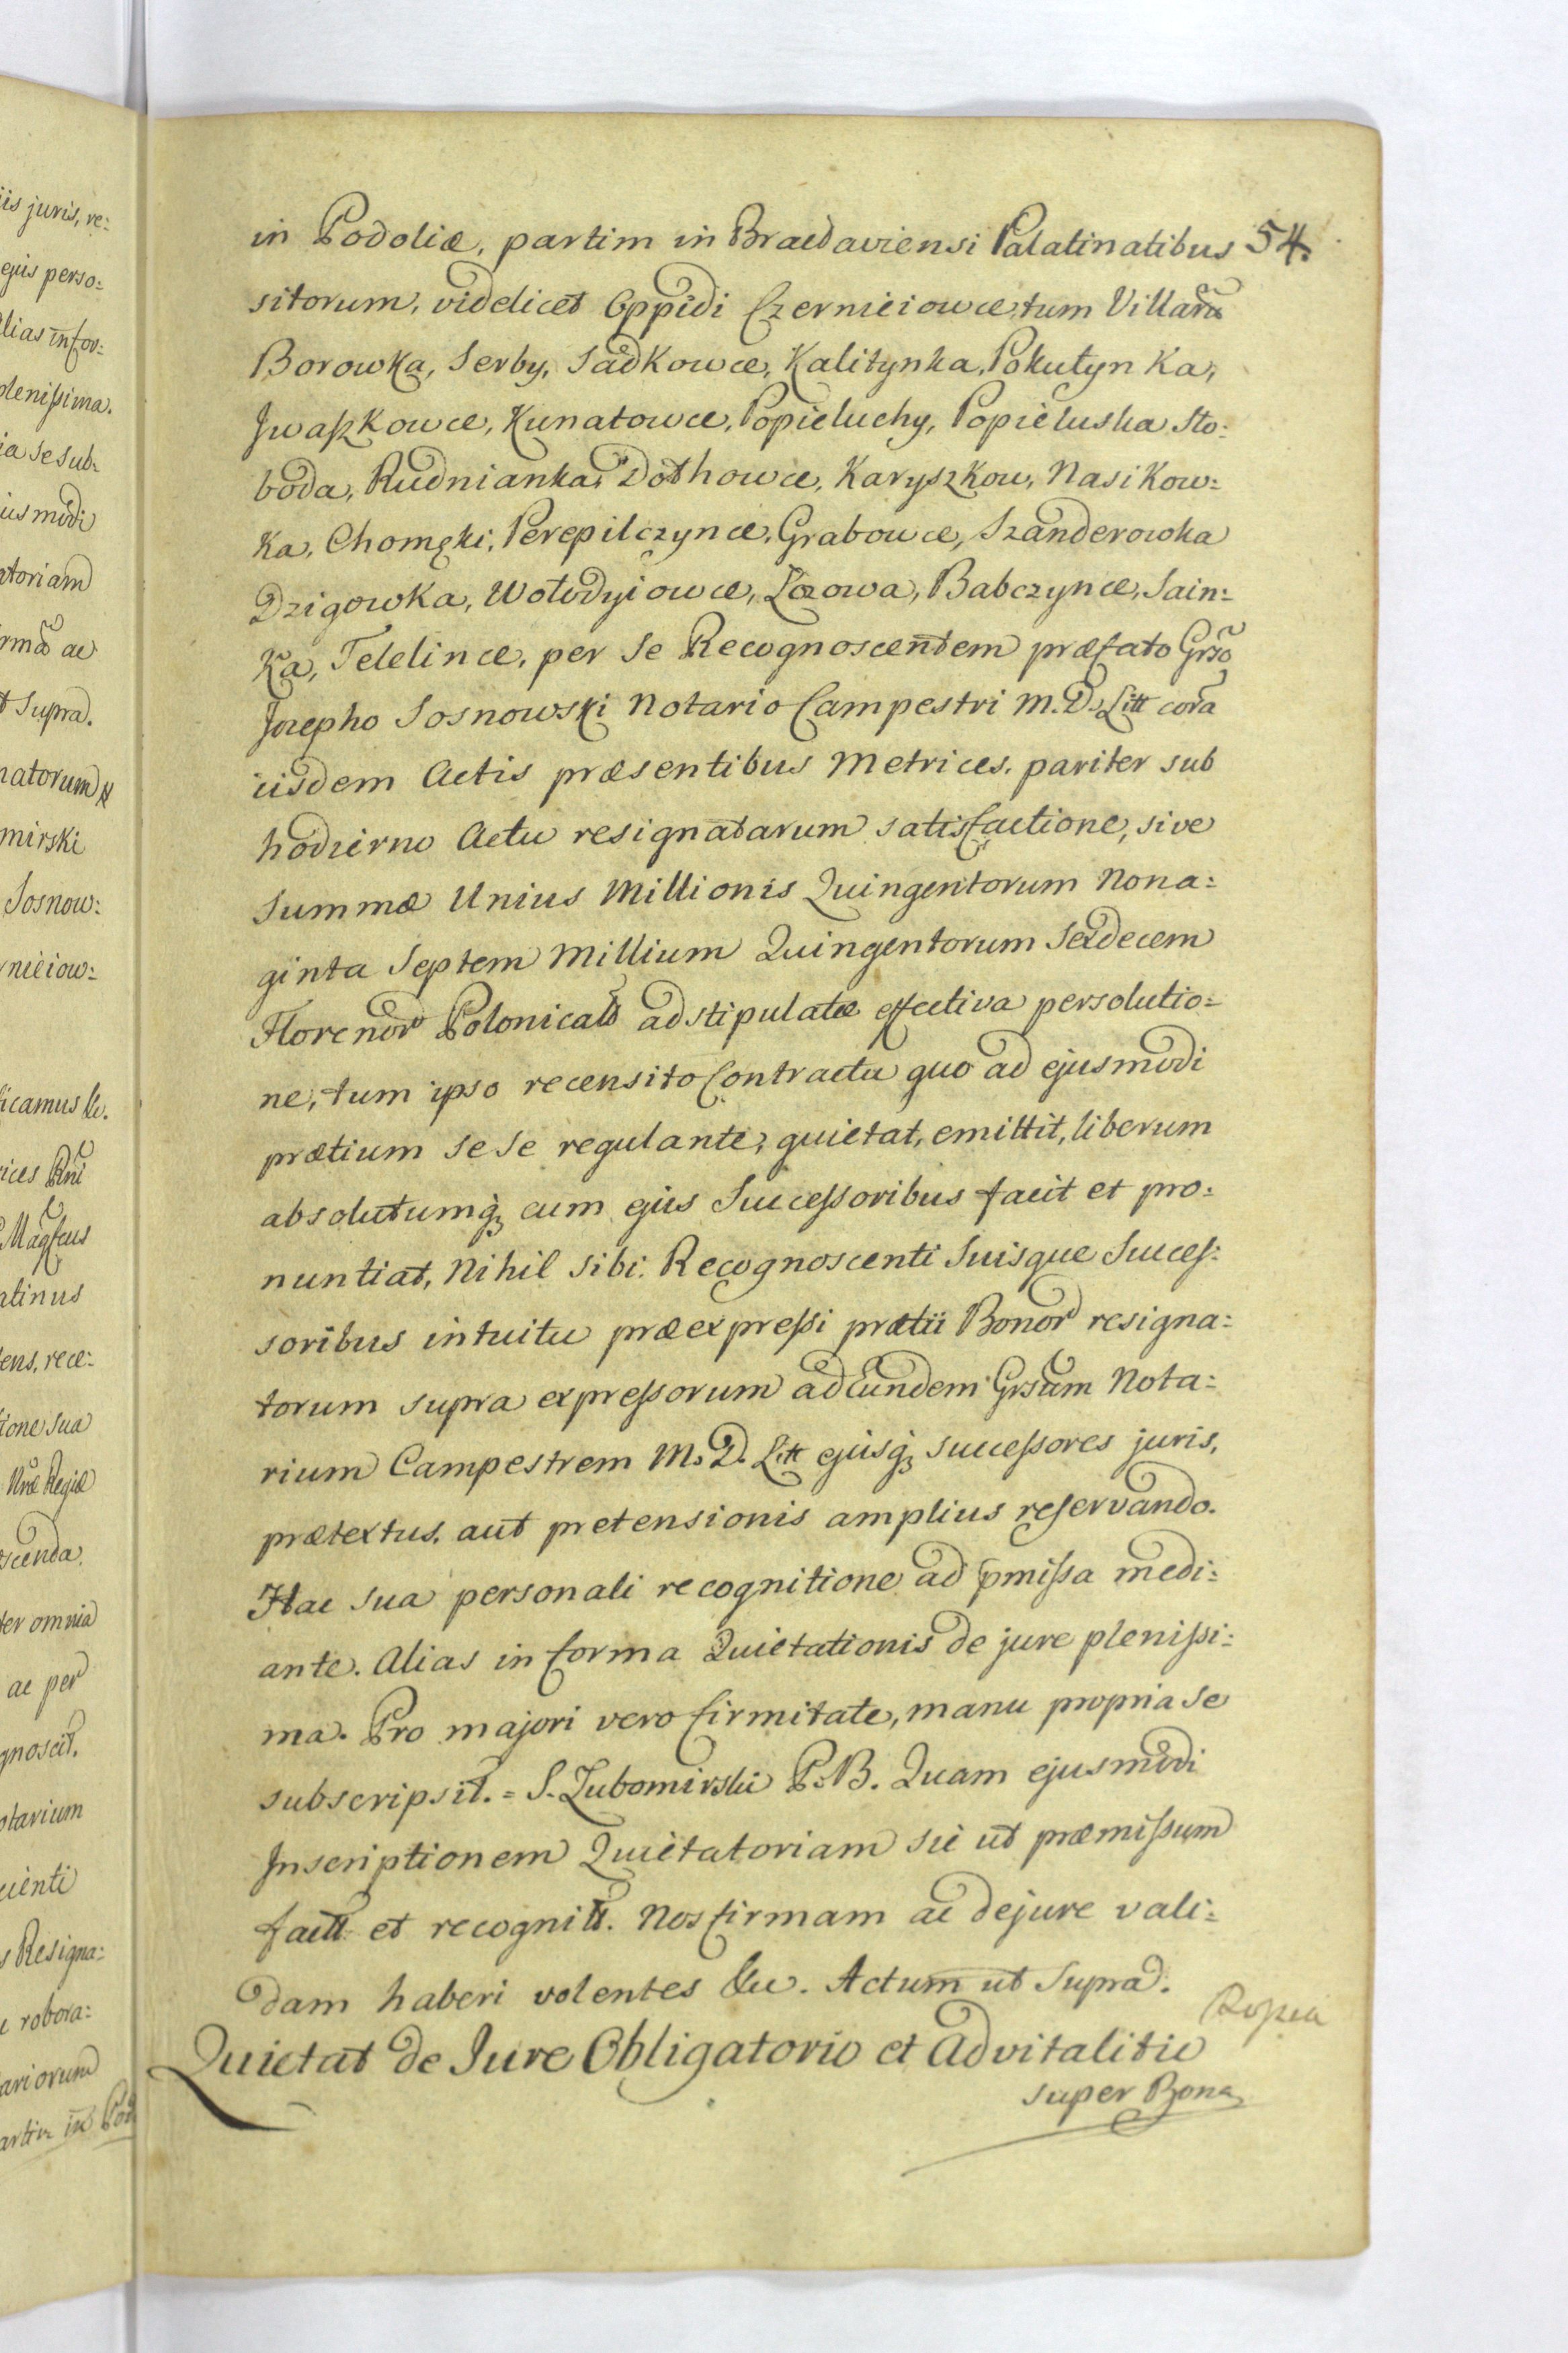 in Podoliæ, partim in Bracdaviensi Palatinatibus 54.
sitorum, videlicet Oppidi Czernieiowce, tum Villarũ
Borowka, Serby, Sadkowce, Kalitynka, Pokutynka,
Jwaszkowce, Kunatowce, Popieluchy, Popieluska Sto:
boda, Rudnianka, Dothowce, Karyszkow, Nasikow:
ka, Chomęki, Perepilczynce, Grabowce, Szanderowka
Dzigowka, Wołodyiowce, Łozowa, Babczynce, Sain:
ka, Telelince, per Se Recognoscentem præfato Grso
Jozepho Sosnowski Notario Campestri M. D. Litt corã
iisdem Actis præsentibus Metrices, pariter sub
hodierno Actu resignatarum satisfactione, sive
Summæ Unius Millionis Quingentorum Nona:
ginta Septem Millium Quingentorum Sexdecem
Florenor Polonicals adstipulatæ effectiva persolutio=
ne, tum ipso recensito Contractu quo ad ejusmodi
prætium se se regulante, quietat, emittit, liberum
absolutumq; eum ejus Successoribus facit et pro:
nuntiat, Nihil sibi Recognoscenti Suisque Succes:
soribus intuitu præexpressi prætii Bonor resigna:
torum supra expressorum ad Eundem Grsum Nota:
rium Campestrem M. D. Litt ejusq; successores juris,
prætextus, aut pretensionis amplius reservando.
Hac sua personali recognitione ad pmissa medi:
ante. Alias in forma Quietationis de jure plenissi:
ma. Pro majori vero firmitate, manu propria se
subscripsit. = S. Lubomirski P. B. Quam ejusmodi
Inscriptionem Quietatoriam sic ut præmissum
factt et recognitt. Nos firmam ac dejure vali:
dam haberi volentes &c. Actum ut Supra.
Quietat de Jure Obligatorio et Advitalitio
super Bona